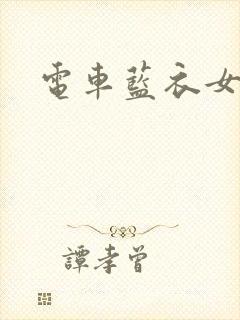 電車藍衣女
譚孝曾